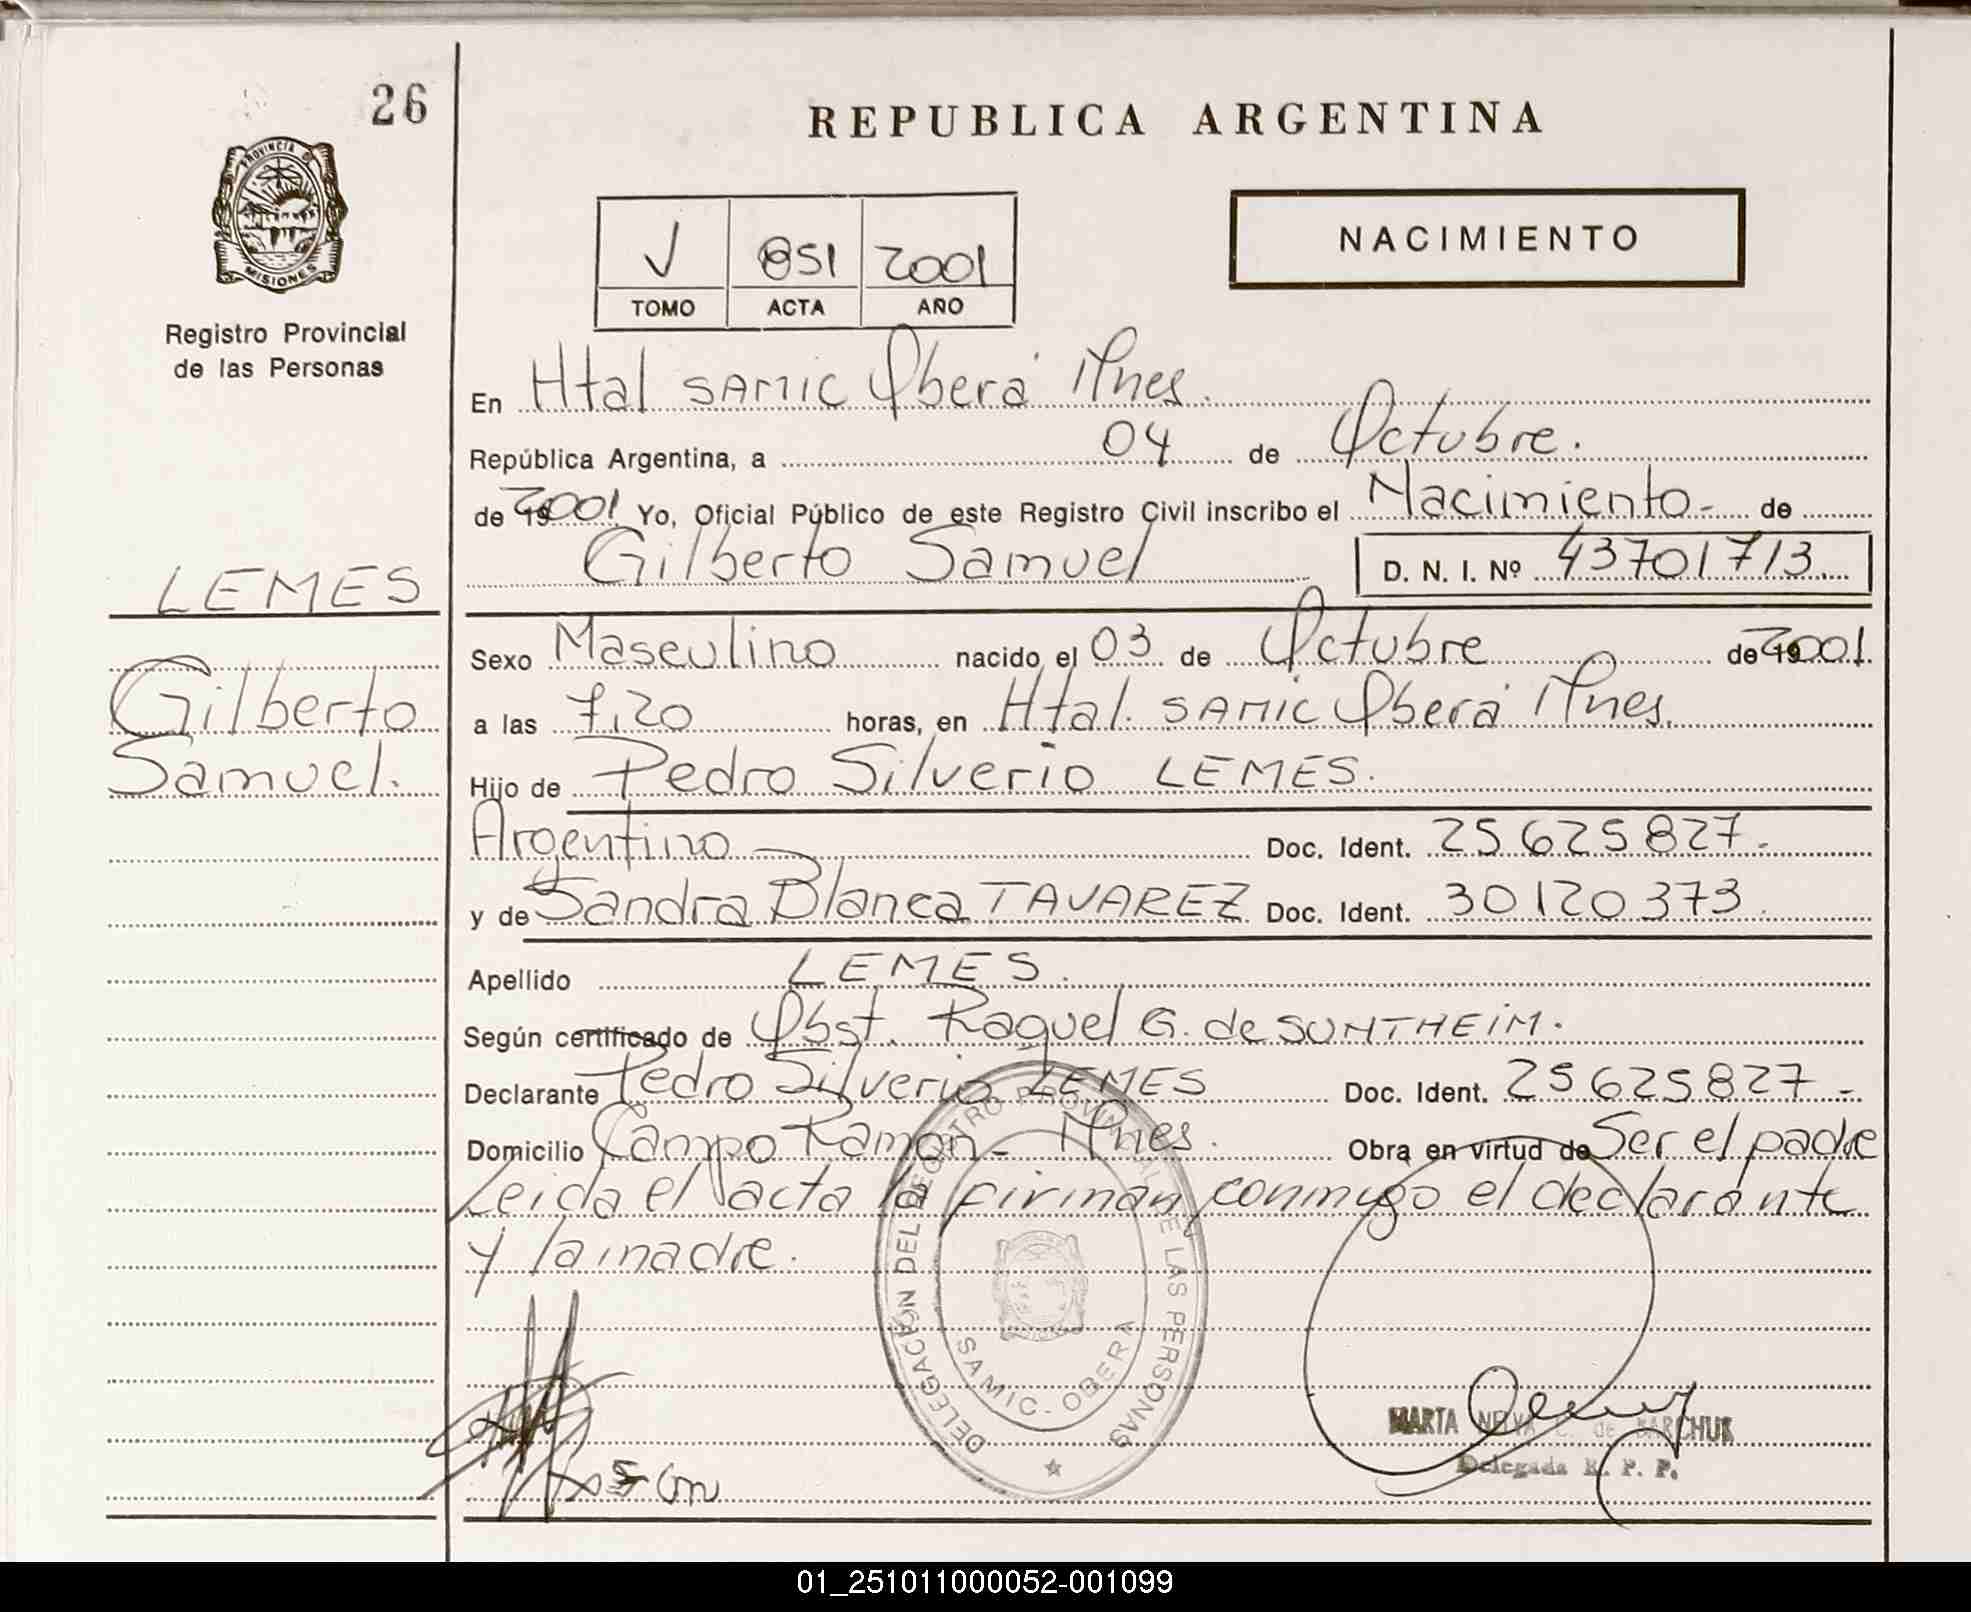 26
REPUBLICA ARGENTINA
PROVINCIA D
MISIONES
Registro Provincial
de las Personas
V 851 2001
TOMO ACTA AÑO
NACIMIENTO
En Htal SAMIC Oberá Mnes.
República Argentina, a 04 de Octubre.
de 2001 Yo, Oficial Público de este Registro Civil inscribo el Nacimiento- de
Gilberto Samuel D. N. I. Nº 43701713
LEMES
Gilberto
Samuel.
Sexo Masculino nacido el 03 de Octubre de 2001.
a las 7,20 horas, en Htal. SAMIC Oberá Mnes.
Hijo de Pedro Silverio LEMES.
Argentino Doc. Ident. 25625827.-
y de Sandra Blanca TAVAREZ Doc. Ident. 30120373.
Apellido LEMES.
Según certificado de Obst. Raquel G. de SONTHEIM.
Declarante Pedro Silverio LEMES Doc. Ident. 25625827.-
Domicilio Campo Ramon- Mnes. Obra en virtud de Ser el padre
Leida el acta la firman conmigo el declarante
y la madre.
DELEGACIÓN DEL REGISTRO PROVINCIAL DE LAS PERSONAS
SAMIC - OBERA
MARTA NELVA C. de BARCHUK
Delegada R. P. P.
01_251011000052-001099